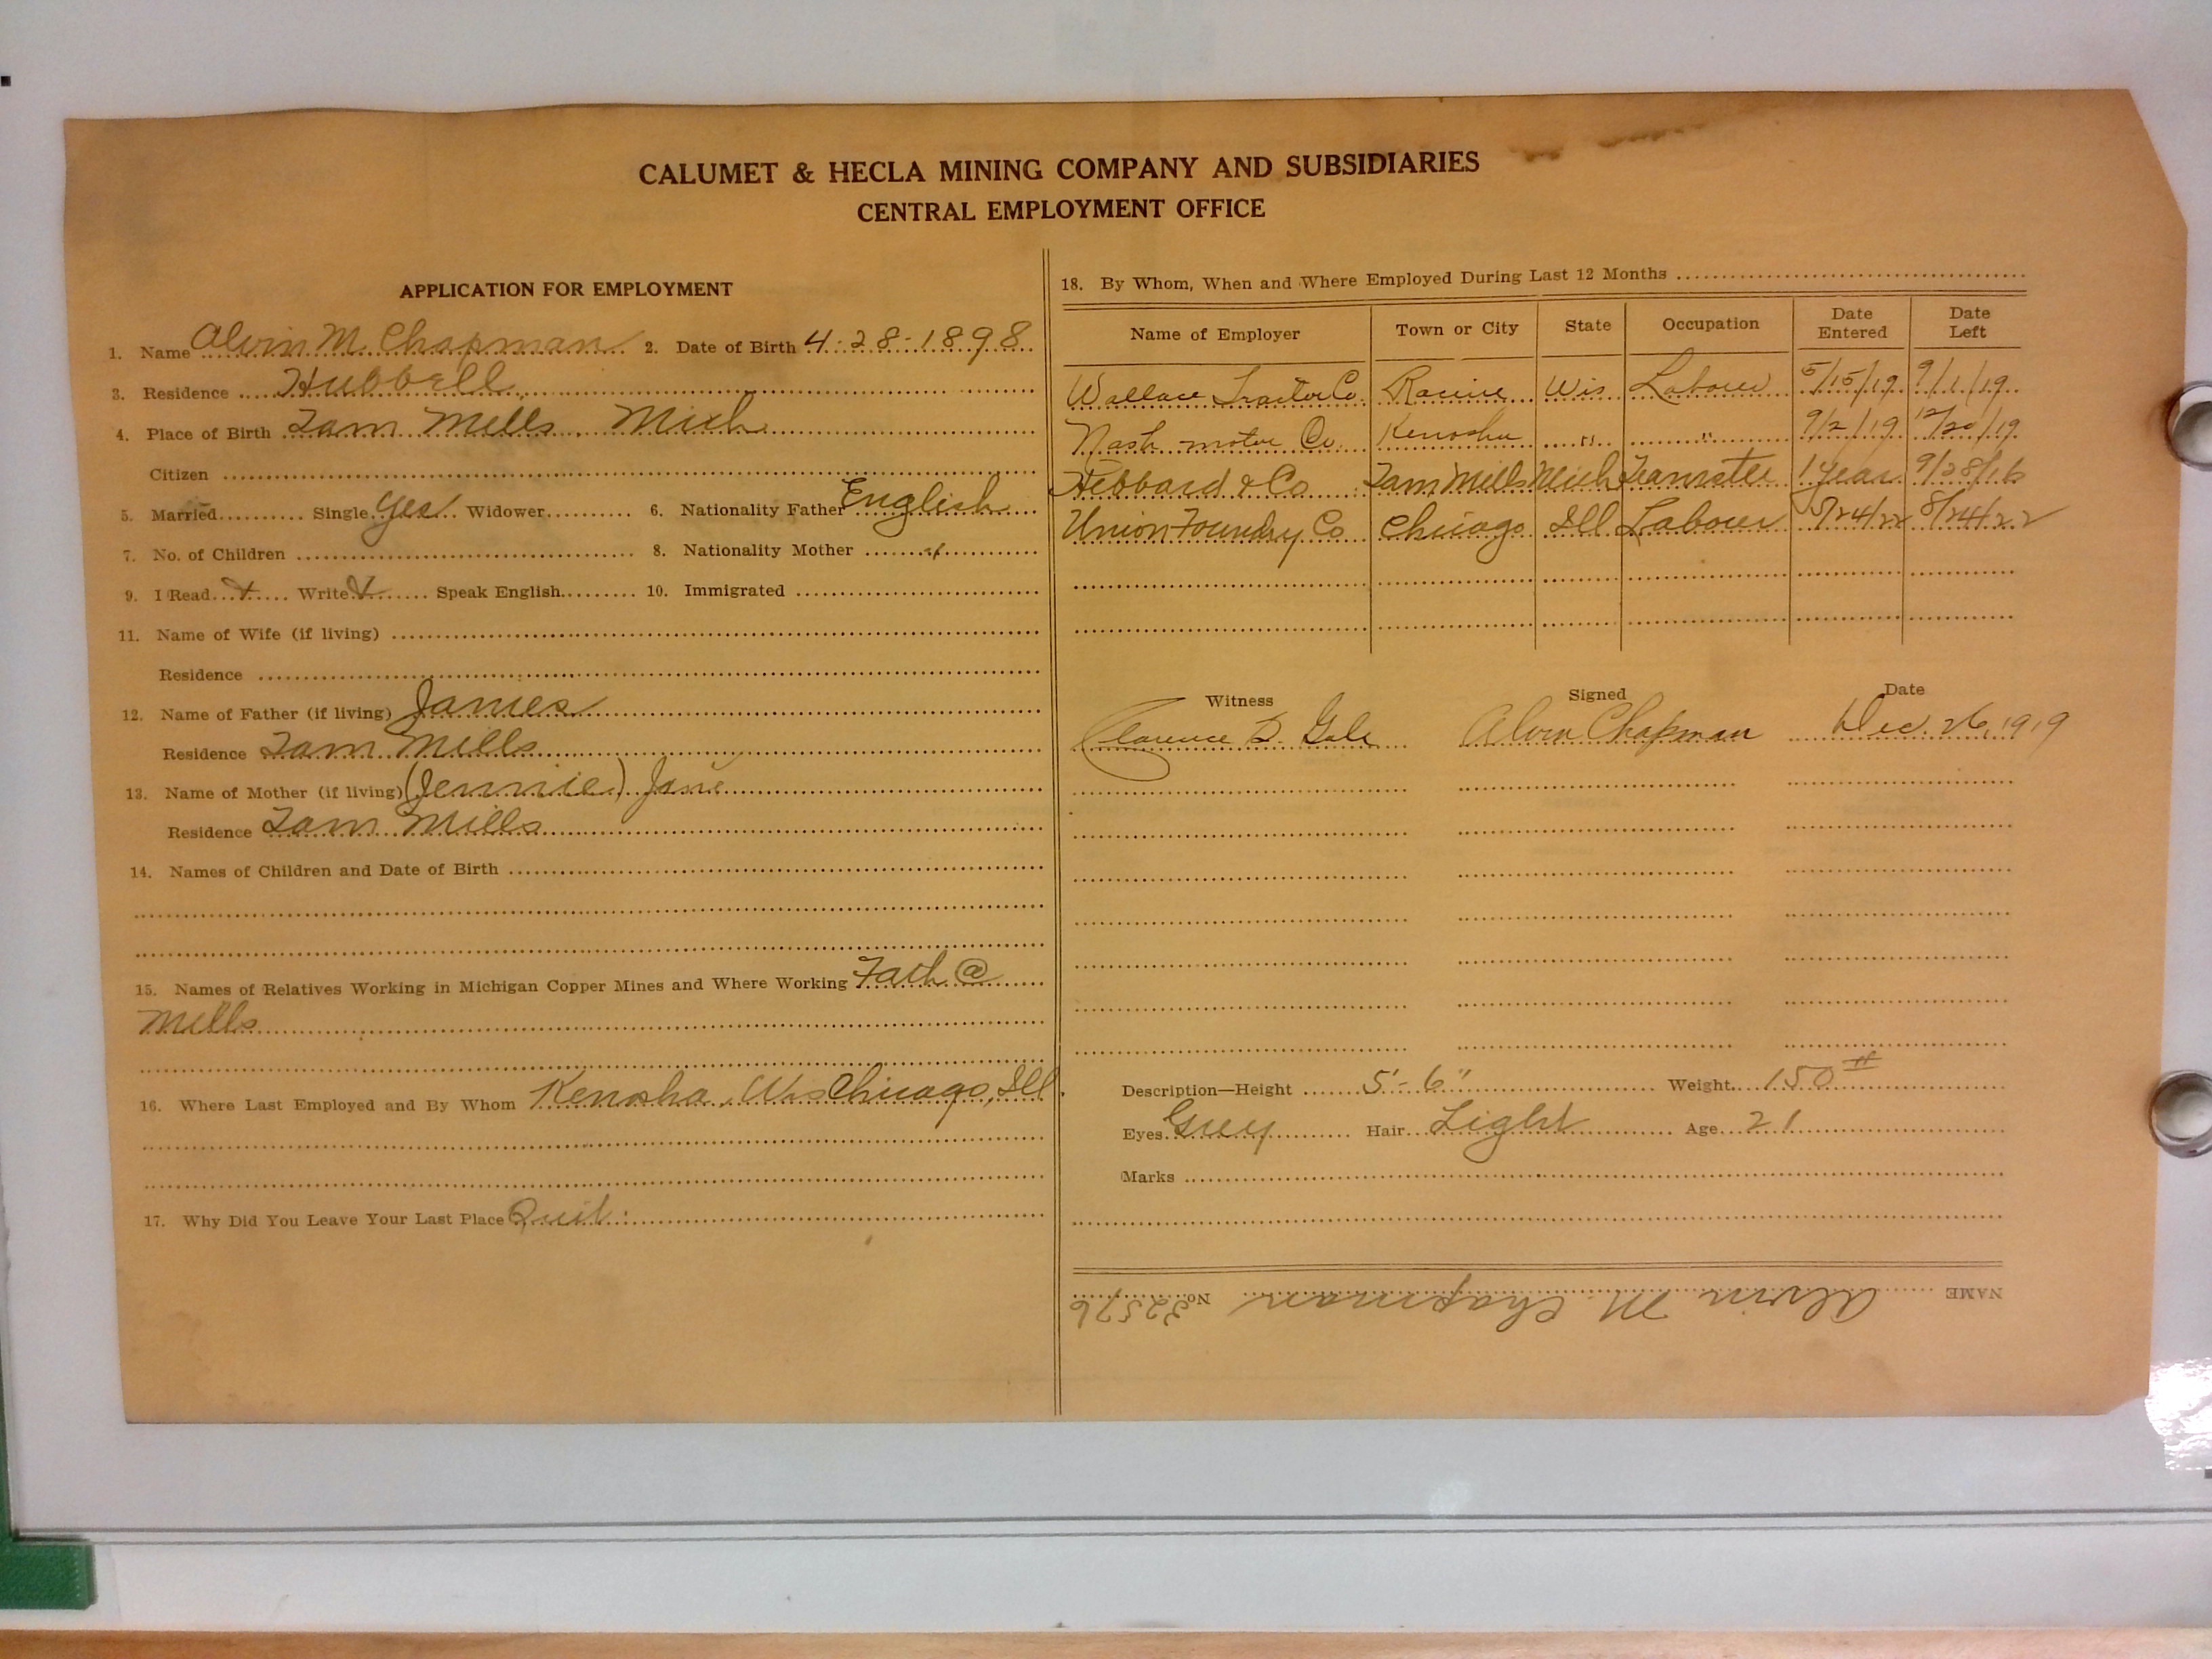 CALUMET & HECLA MINING COMPANY AND SUBSIDIARIES
CENTRAL EMPLOYMENT OFFICE
APPLICATION FOR EMPLOYMENT
1. Name Alvin M. Chapman 2. Date of Birth 4-28-1898
3. Residence Hubbell
4. Place of Birth Tam Mills, Mich
Citizen
5. Married Single yes Widower 6. Nationality Father English
7. No. of Children 8. Nationality Mother "
9. I Read x Write x Speak English 10. Immigrated
11. Name of Wife (if living)
Residence
12. Name of Father (if living) James
Residence Tam Mills
13. Name of Mother (if living) (Jennie) Jane
Residence Tam Mills
14. Names of Children and Date of Birth
15. Names of Relatives Working in Michigan Copper Mines and Where Working Fath @
Mills
16. Where Last Employed and By Whom Kenosha, Wis Chicago, Ill.
17. Why Did You Leave Your Last Place Quit.
18. By Whom, When and Where Employed During Last 12 Months
Name of Employer Town or City State Occupation Date Entered Date Left
Wallace Tractor Co. Racine Wis Laborer 5/15/19 9/1/19
Nash motor Co. Kenosha " " 9/2/19 12/20/19
Hebbard & Co Tam Mills Mich Teamster 1 year 9/28/16
Union Foundry Co Chicago Ill Laborer 5/24/22 8/24/22
Witness Signed Date
Clarence D. Gale Alvin Chapman Dec. 26, 1919
Description—Height 5'-6" Weight 150 #
Eyes Grey Hair Light Age 21
Marks
NAME Alvin M. Chapman No. 32576